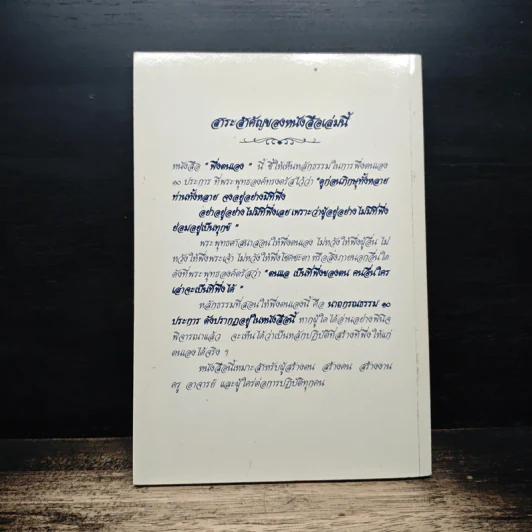 สาระสำคัญของหนังสือเล่มนี้
หนังสือ " พึ่งตนเอง " นี้ ชี้ให้เห็นหลักธรรมในการพึ่งตนเอง
๑๐ ประการ ที่พระพุทธองค์ทรงตรัสไว้ว่า "ดูก่อนภิกษุทั้งหลาย
ท่านทั้งหลาย จงอยู่อย่างมีที่พึ่ง
อย่าอยู่อย่างไม่มีที่พึ่งเลย เพราะว่าผู้อยู่อย่างไม่มีที่พึ่ง
ย่อมอยู่เป็นทุกข์ "
พระพุทธศาสนาสอนให้พึ่งตนเอง ไม่หวังให้พึ่งผู้อื่น ไม่
หวังให้พึ่งพระเจ้า ไม่หวังให้พึ่งโชคชะตา หรือสิ่งภายนอกอื่นใด
ดังที่พระพุทธองค์ตรัสว่า "ตนแล เป็นที่พึ่งของตน คนอื่นใคร
เล่าจะเป็นที่พึ่งได้ "
หลักธรรมที่สอนให้พึ่งตนเองนี้ คือ นาถกรณธรรม ๑๐
ประการ ดังปรากฏอยู่ในหนังสือนี้ หากผู้ใดได้อ่านอย่างพินิจ
พิจารณาแล้ว จะเห็นได้ว่าเป็นหลักปฏิบัติที่สร้างที่พึ่งให้แก่
ตนเองได้จริง ๆ
หนังสือนี้เหมาะสำหรับผู้สร้างตน สร้างคน สร้างงาน
ครู อาจารย์ และผู้ใคร่ต่อการปฏิบัติทุกคน